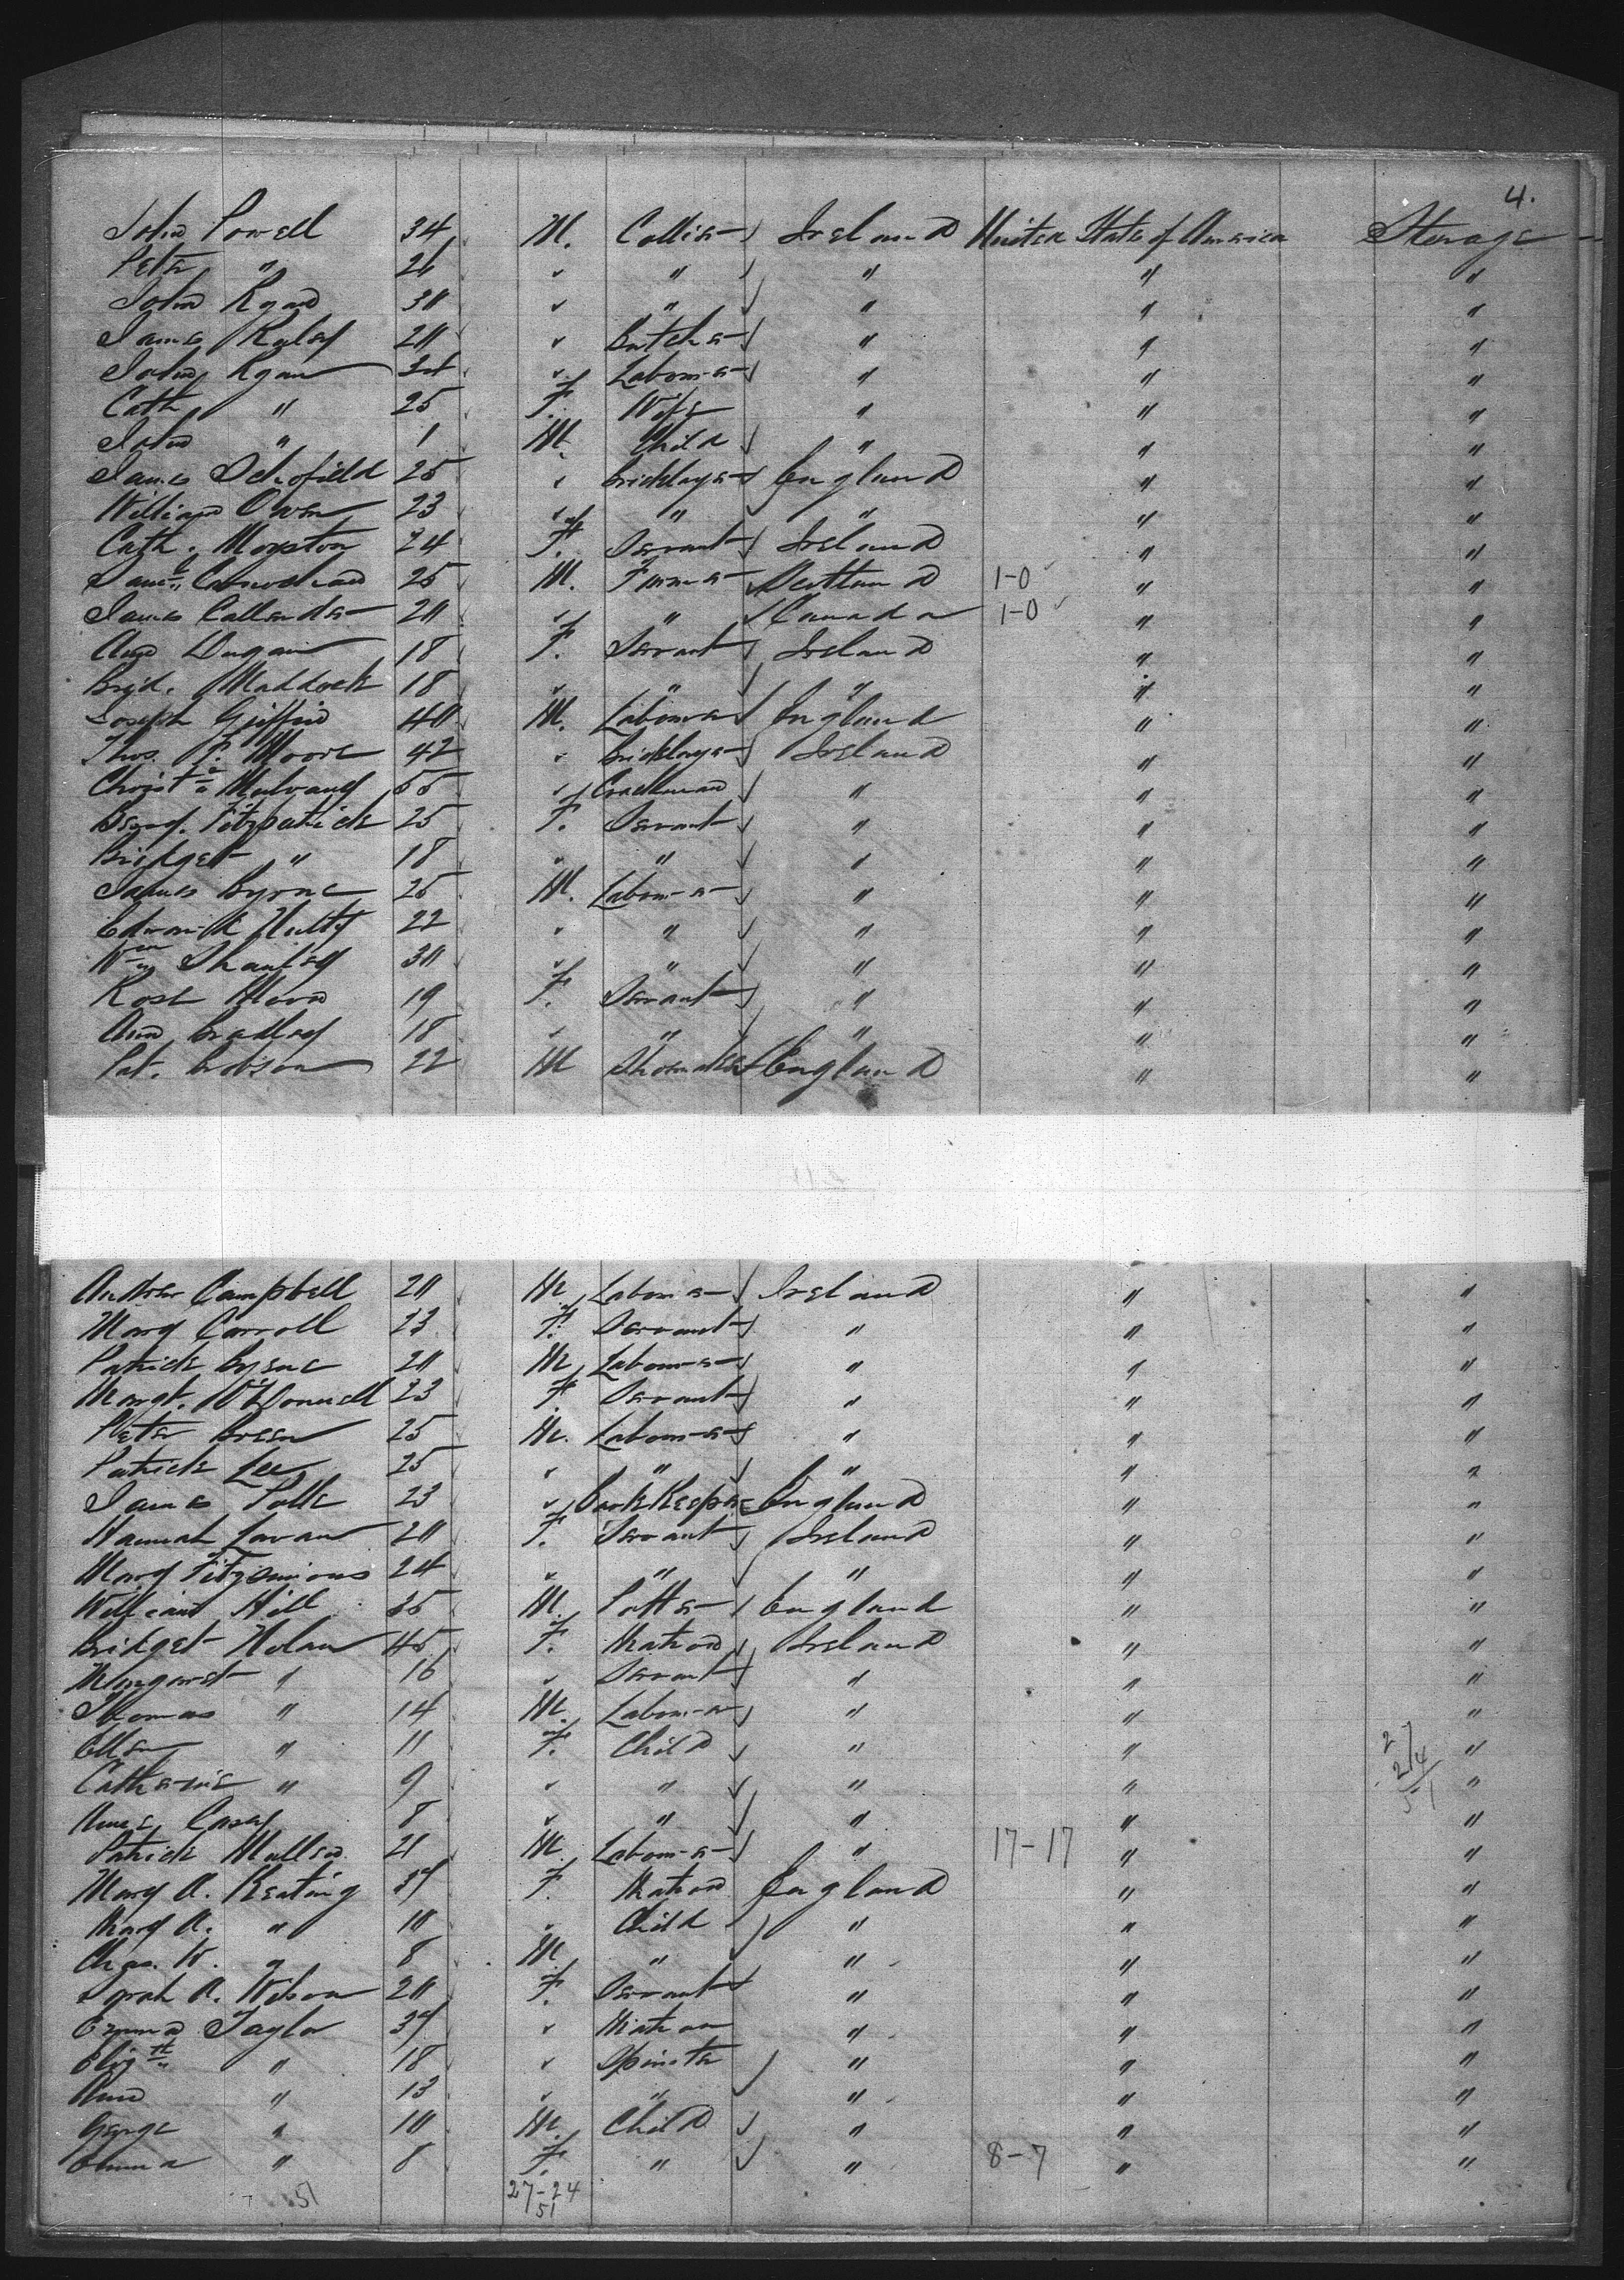 4.
John Powell 34 M. Collier Ireland United State of America Sterage
Peter " 26 " " " " "
John Ryan 30 " " " " "
James Kyley 20 " Butcher " " "
John Ryan 34 " Labourer " " "
Cath " 25 F. Wife " " "
John " 1 M. Child " " "
James Schofield 25 " Bricklayer England " "
William Owen 23 " " " " "
Cath. 24 F. Servant Ireland " "
25 M. Farmer Scotland 1-0 " "
James Callender 20 " " Canada 1-0 " "
Ann Dugan 18 F. Servant Ireland " "
Brijd. Maddock 18 " " " " "
Joseph Griffin 40 M. Labourer England " "
Thos. F. Moore 42 " Bricklayer Ireland " "
Mulvany 55 " Coachman " " "
Fitzpatrick 25 F. Servant " " "
Bridget " 18 " " " " "
James Byrne 25 M. Labourer " " "
Edward Nulty 22 " " " " "
Wm Shanley 30 " " " " "
Rose Moon 19 F. Servant " " "
Ann Bradley 18 " " " " "
Pat. 22 M Shomaker England " "
Andrew Campbell 20 M Labourer Ireland " "
Mary Carroll 23 F. Servant " " "
Patrick Byrne 20 M Labourer " " "
Margt. McDonnell 23 F Servant " " "
Peter Breen 25 M. Labourer " " "
Patrick Lee 25 " " " " "
James 23 " Book Keeper England " "
Hannah Lavan 20 F. Servant Ireland " "
Mary Fitzsimions 24 " " " " "
William Hill 35 M. Potter England " "
Bridget Nolan 45 F. Matron Ireland " "
Margaret " 16 " Servant " " "
Thomas " 14 M. Labourer " " "
Ellen " 11 F. Child " " 27 "
Catherine " 9 " " " " 24 "
51
Anne Casey 8 " " " " "
Patrick Mullen 21 M Labourer " 17-17 " "
Mary A. Keating 37 F. Matron England " "
Mary A. " 10 " Child " " "
Chas. W. " 8 M " " " "
Sarah A. Wilson 20 F. Servant " " "
Emma Taylor 37 " Matron " " "
Elizth " 18 " Spinster " " "
Ann " 13 " " " " "
George " 10 M. Child " " "
Emma " 8 F. " " 8-7 " "
51 27-24
51